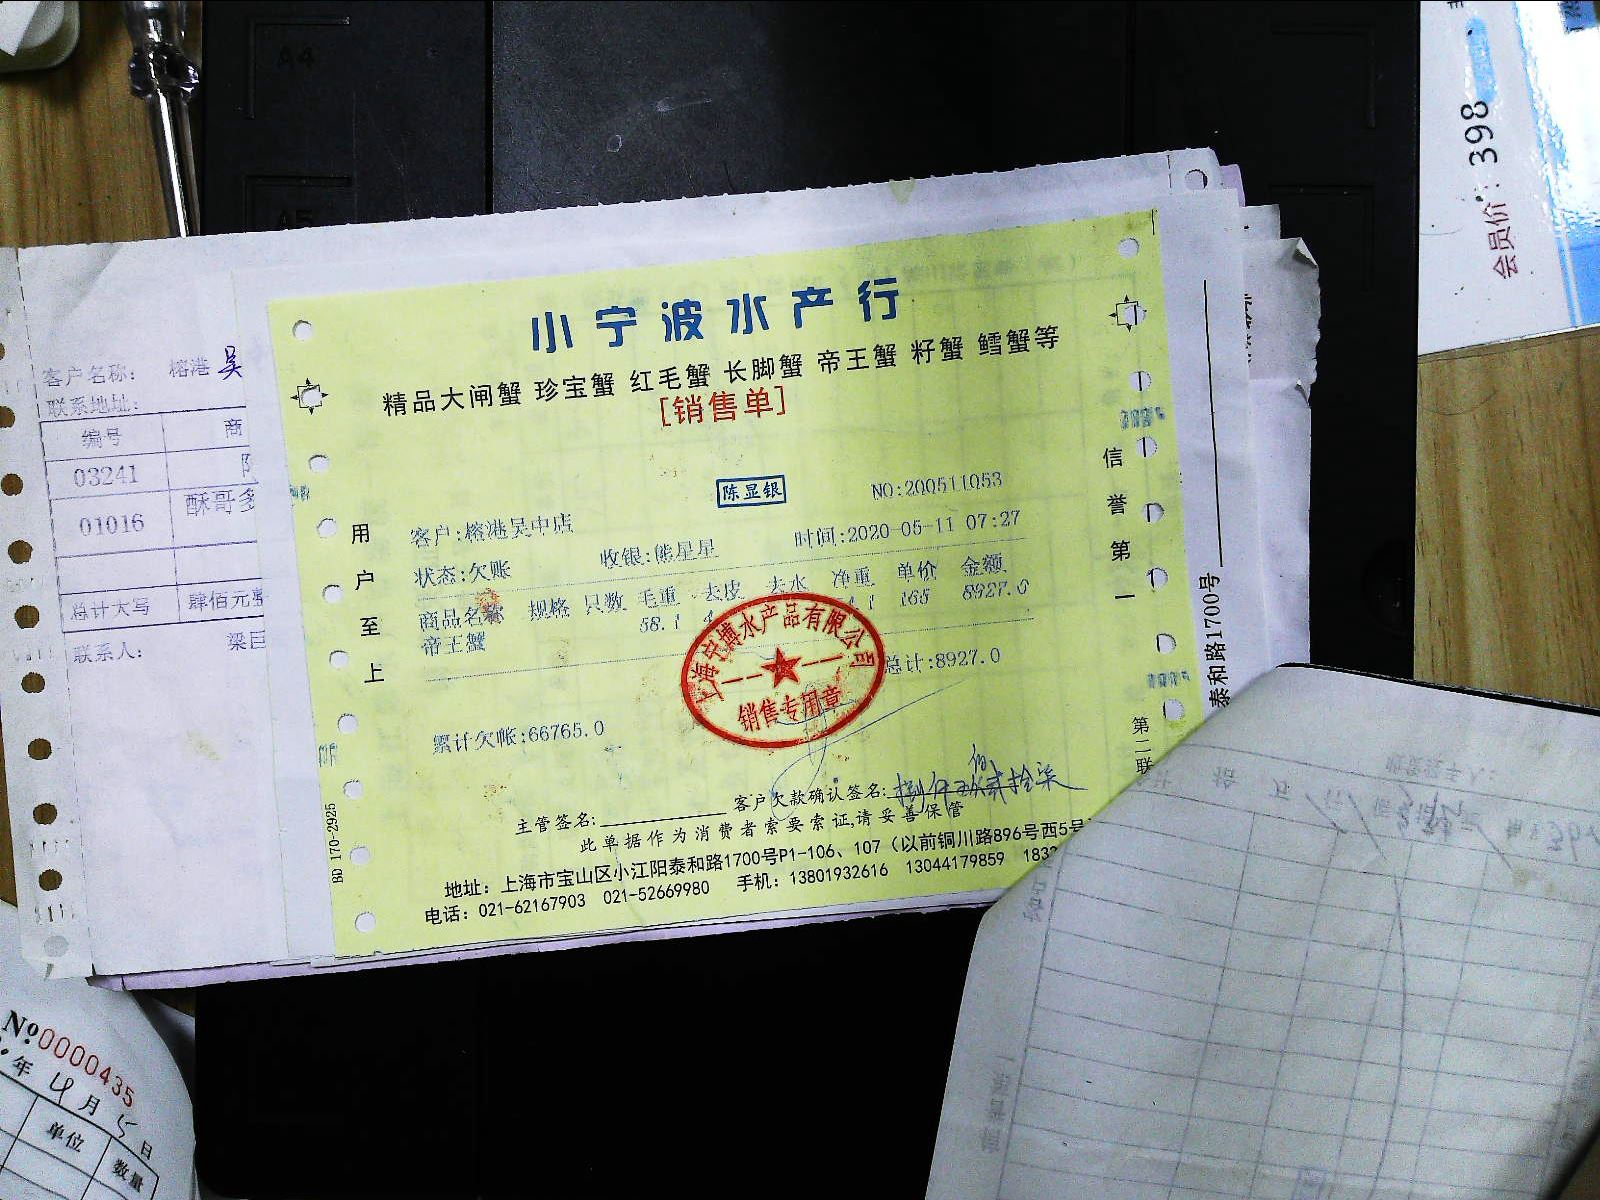 A4
A5
会员价：398
客户名称： 榕港吴
联系地址：
编号 商
03241
01016 酥哥多
总计大写 肆佰元整
联系人： 梁
小宁波水产行
精品大闸蟹 珍宝蟹 红毛蟹 长脚蟹 帝王蟹 籽蟹 鳕蟹等
[销售单]
陈显银
NO:200511053
客户:榕港吴中店
收银:熊星星
时间:2020-05-11 07:27
状态:欠账
商品名称 规格 只数 毛重 去皮 去水 净重 单价 金额
帝王蟹 58.1 165 8927.0
总计:8927.0
累计欠帐:66765.0
上海宁博水产品有限公司
销售专用章
主管签名: 客户欠款确认签名:
此单据作为消费者索要索证,请妥善保管
地址：上海市宝山区小江阳泰和路1700号P1-106、107（以前铜川路896号西5号
电话：021-62167903 021-52669980 手机：13801932616 13044179859 183
用户至上
信誉第一
第二联
BD 170-2925
泰和路1700号
№0000435
年 4月 5日
单位 数量